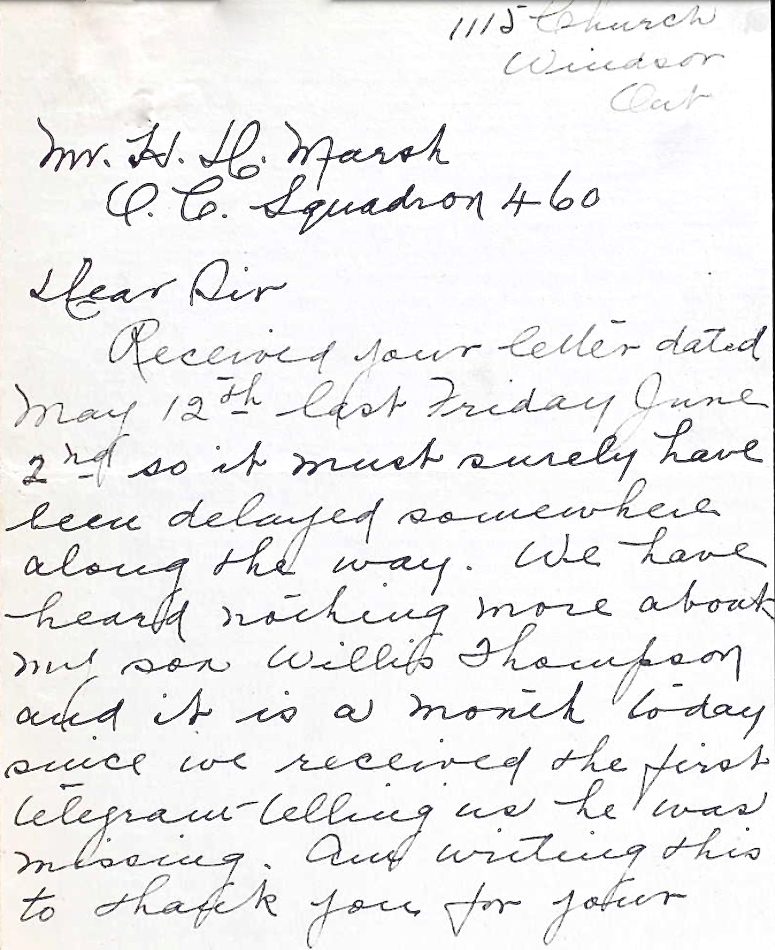 1115 Church
Windsor
Ont
Mr. H. H. Marsh
O. C. Squadron 460
Dear Sir
Received your letter dated
May 12th last Friday June
2nd so it must surely have
been delayed somewhere
along the way. We have
heard nothing more about
my son Willis Thompson
and it is a month today
since we received the first
telegram telling us he was
missing. Am writing this
to thank you for your